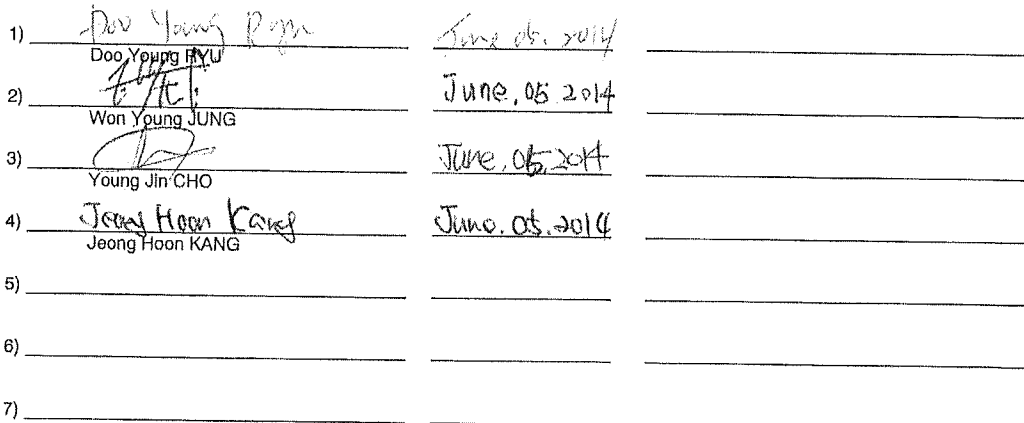 1) Doo Young Ryu June 05. 2014
Doo Young RYU
2) June. 05 2014
Won Young JUNG
3) June, 05, 2014
Young Jin CHO
4) Jeong Hoon Kang June. 05. 2014
Jeong Hoon KANG
5)
6)
7)